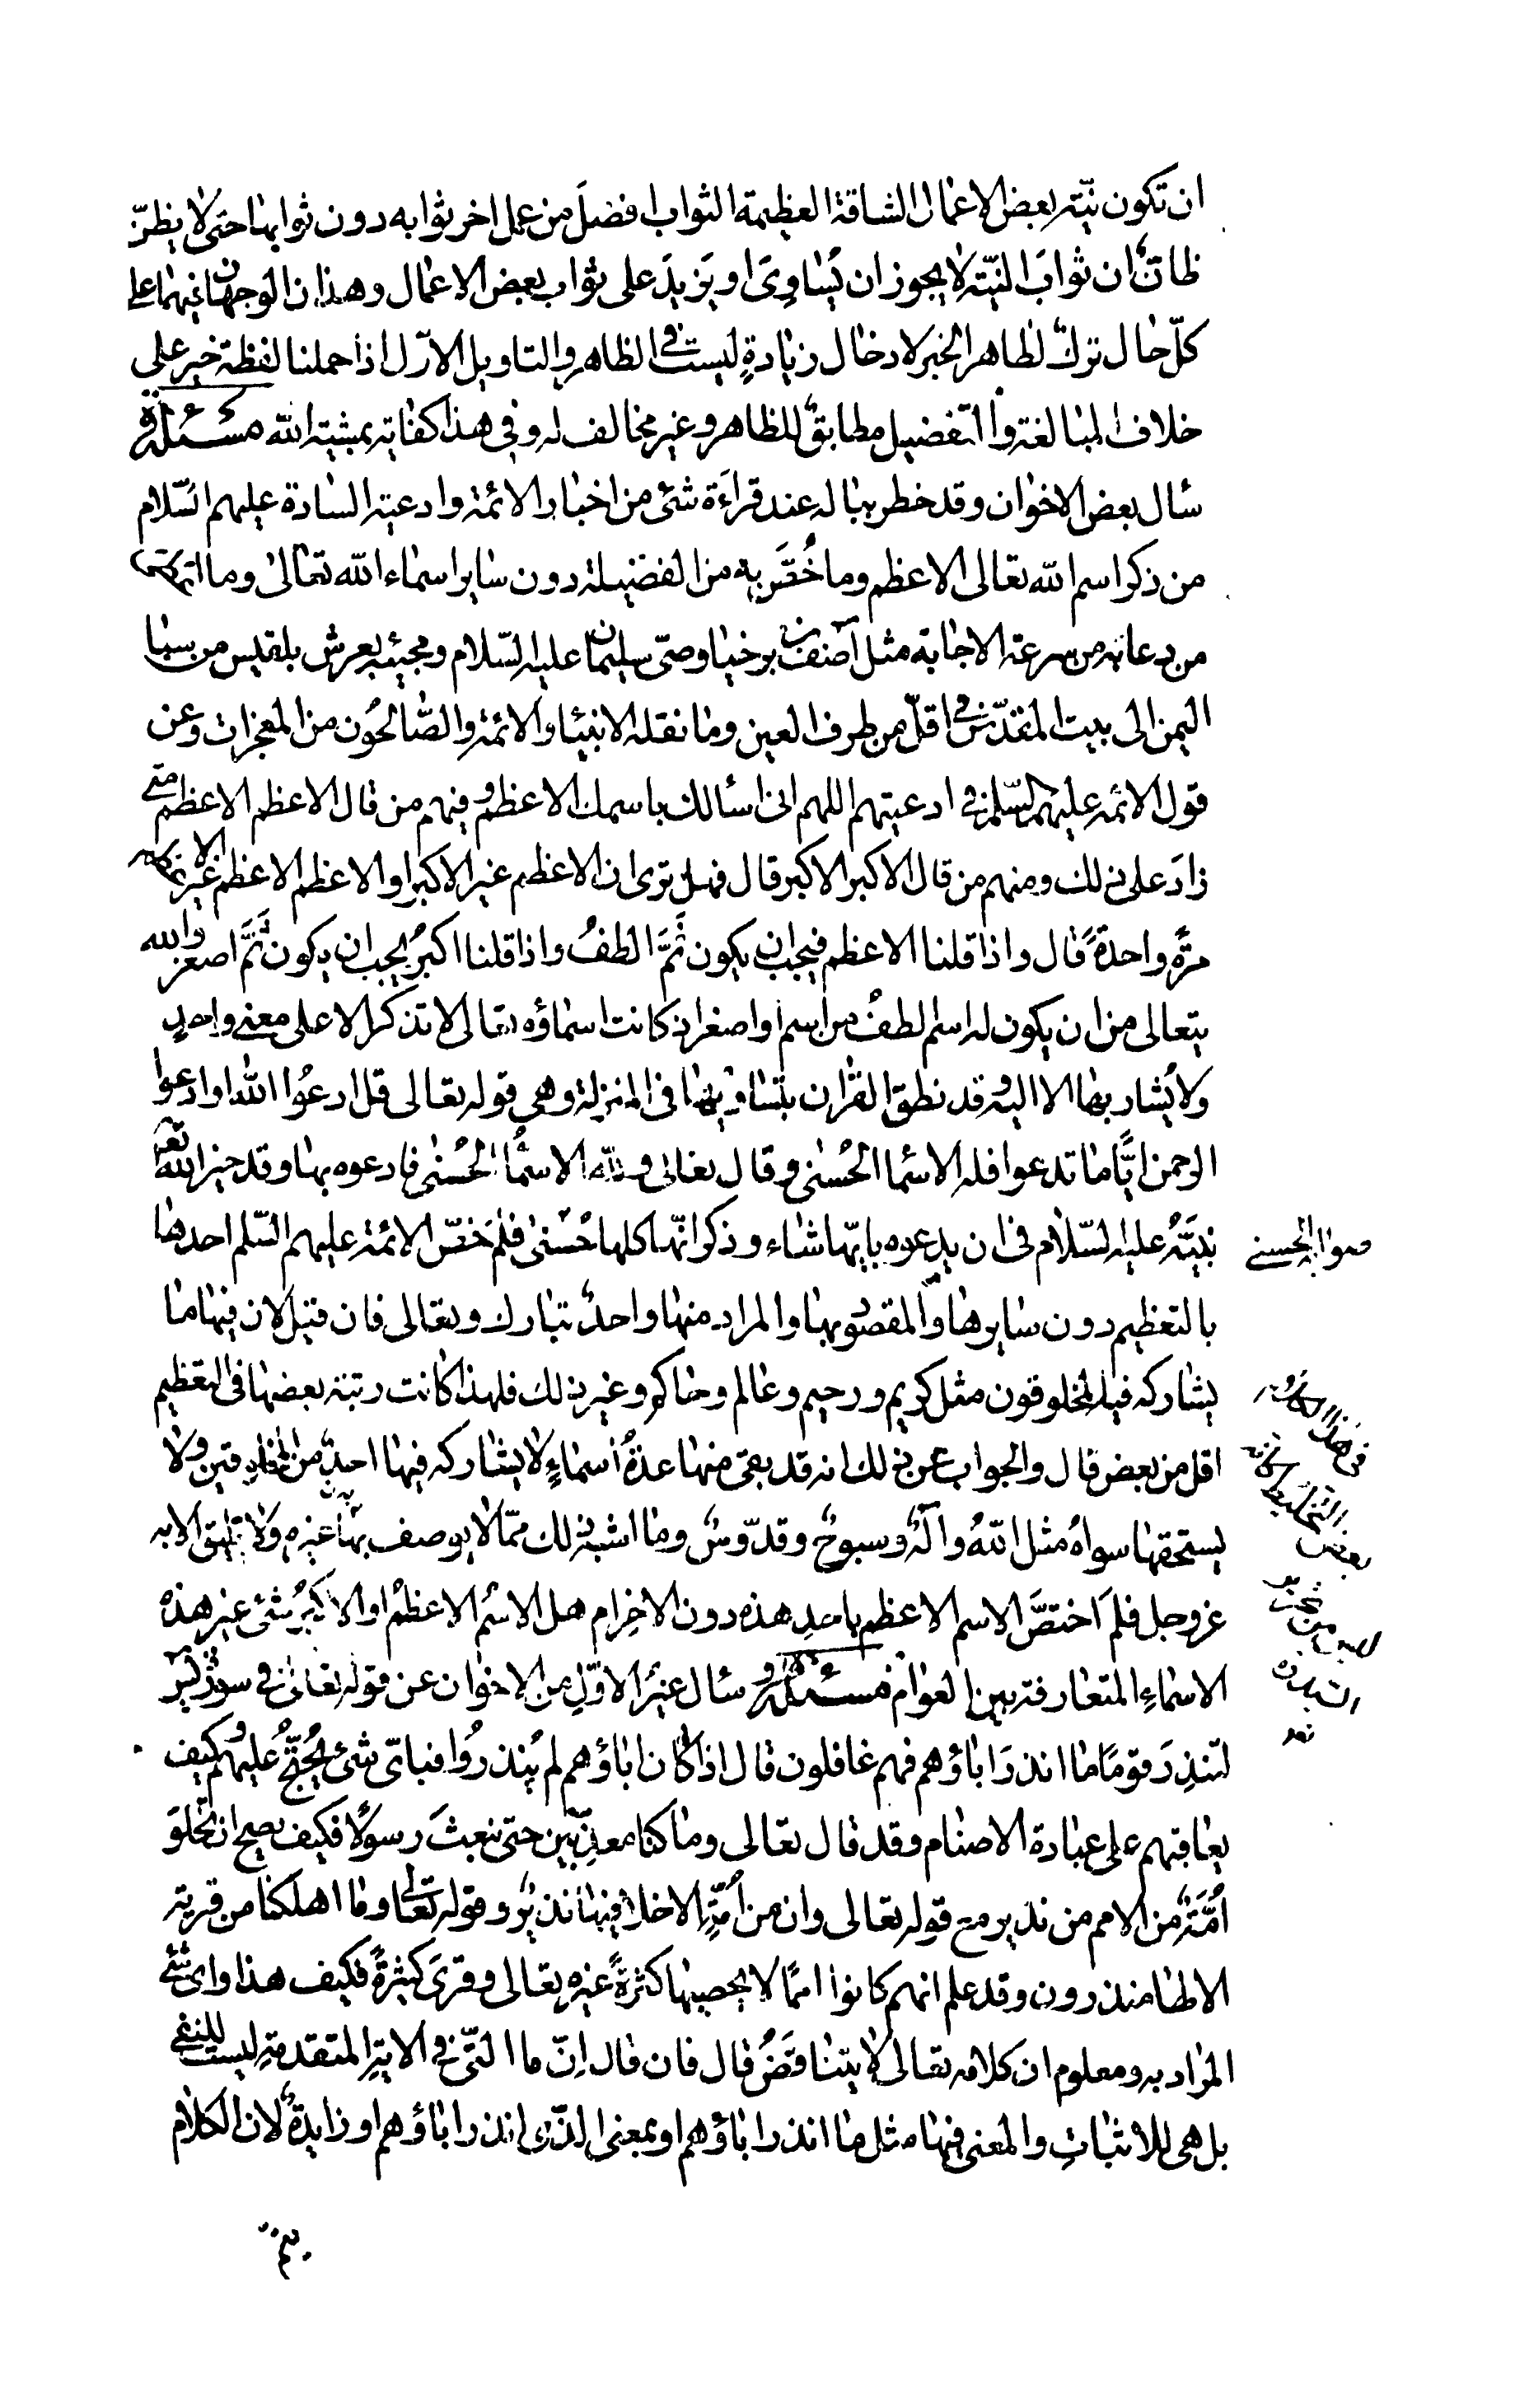 ان تكون نيّته بعض الاعمال الشاقة العظيمة الثواب افضلَ من عمل اخر ثوابه دون ثوابها حتى لا يظنّ
ظانٌّ ان ثوابَ النيّة لا يجوز ان يُساوِىَ او يَزيدَ على ثواب بعض الاعمال وهذان الوجهان فيهما على
كلّ حال تركٌ لظاهر الخبر لادخال زيادةٍ ليست في الظاهر والتاويل الاوّل اذا حملنا لفظة خير على
خلاف المبالغة والتفضيل مطابقٌ للظاهر وغير مخالف له وفي هذا كفاية بمشية الله مسئلة
سأل بعض الاخوان وقد خطر بباله عند قراءة شئ من اخبار الائمة وادعية السادة عليهم السّلام
من ذكر اسم الله تعالى الاعظم وما خُصَّ به من الفضيلة دون ساير اسماء الله تعالى وما
من دعا به من سرعة الاجابة مثل آصف بن برخيا وصىّ سليمان عليه السّلام ومجيئه بعرش بلقيس من سبا
اليمن الى بيت المقدّس في اقلّ من طرف العين وما نقله الانبيا والائمة والصّالحُون من المعجزات وعن
قول الائمه عليهم السّلم في ادعيتهم اللهم انى اسألك باسمك الاعظم وفيهم من قال الاعظم الاعظم متى
زادَ على ذلك ومنهم من قال الاكبر الاكبر قال فهل ترى ان الاعظم غير الاكبر او الاعظم الاعظم غير
مرّةً واحدةً قال واذا قلنا الاعظم فيجب ان يكون ثَمَّ الطفُ واذا قلنا اكبرُ يجب ان يكون ثَمَّ اصغر والله
يتعالى من ان يكون له اسم الطفُ من اسم او اصغر اذ كانت اسماؤه تعالى لا تذكر الا على معنى واحدٍ
ولا يُشار بها الا اليه وقد نطق القران بتساويها في المنزلة وهي قوله تعالى قل ادعُوا الله او ادعوا
الرحمن ايًّا ما تدعوا فله الاسما الحُسنى وقال تعالى ولله الاسمُا الحُسنى فادعوه بها وقد خير الله تعالى
نبيَّهُ عليه السّلام في ان يدعوه بايّها شاء وذكر انّها كلها حُسنى فلمَ خصّ الائمة عليهم السّلم احدها
صوابه الحسنى
بالتعظيم دون سايرها والمقصود بها والمراد منها واحدٌ تبارك وتعالى فان قيل لان فيها ما
يشاركه فيه المخلوقون مثل كريم ورحيم وعالم وحاكم وغير ذلك فلهذا كانت رتبة بعضها في التعظيم
اقل من بعض قال والجواب عن ذلك انه قد بقى منها عدةُ أسماءٍ لا يشاركه فيها احدٌ من المخلوقين ولا
يستحقها سواهُ مثل اللهُ والهٌ وسبوحٌ وقدّوسٌ وما اشبه ذلك ممّا لا يوصف بها غيره ولا تليق الا به
عز وجل فلمَ اختصَّ الاسم الاعظم باحدِ هذه دون الاخِر ام هل الاسُم الاعظمُ او الاكبرُ شئ غير هذه
الاسماءِ المتعارفة بين العوام مسئلة سأل غيرُ الاوّلِ من الاخوان عن قوله تعالى في سورة يس
لتنذِرَ قومًا ما انذرَ اباؤهم فهم غافلون قال اذا كان اباؤهم لم يُنذروُا فباىّ شئ يُحتَجُّ عليهم وكيف
يعاقبهم على عبادة الاصنام وقد قال تعالى وما كنا معذِّبين حتى نبعثَ رسولًا فكيف يصح ان تخلوَ
اُمَّةٌ من الامم من نذير مع قوله تعالى وان من اُمّةٍ الا خلا فيها نذيرٌ وقوله تعالى وما اهلكنا من قرية
الا لها منذرون وقد علم انهم كانوا امًما لا يحصيها كثرةً غيره تعالى وقرىً كثيرةً فكيف هذا واى شئ
المراد به ومعلوم ان كلامه تعالى لا يتناقضُ قال فان قال اِنّ ما التّى في الاية المتقدمةِ ليست للنفى
بل هى للاثباتِ والمعنى فيها مثل ما انذر اباؤهم او بمعنى الذّى انذر اباؤهم او زايدةٌ لان الكلام